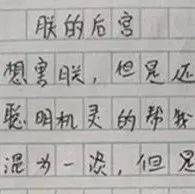 朕的后宫
想害朕，但是还
聪明机灵的帮我
混为一谈，但是